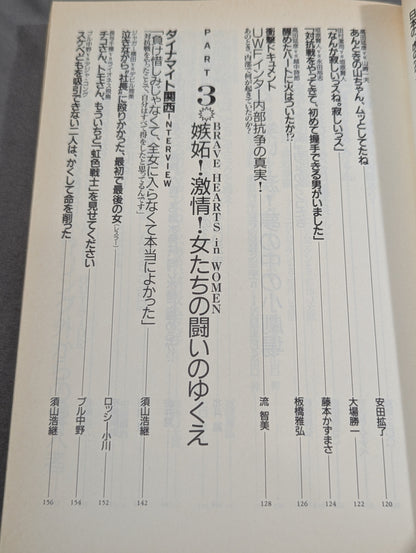 あんときの山ちゃん、ムッとしてたね
安田拡了
120
「なんか寂しいっスね。寂しいっス」
大場勝一
122
「対抗戦をやってきて、初めて握手できる男がいました」
藤本かずまさ
124
醒めたハートに火はついたか!?
板橋雅弘
126
衝撃ドキュメント
UWFインター内部抗争の真実!
あのとき、内部で何が起きていたのか?
流 智美
128
PART 3
BRAVE HEARTS in WOMEN
嫉妬!激情!女たちの闘いのゆくえ
ダイナマイト・関西 INTERVIEW
「負け惜しみじゃなくて、全女に入らなくて本当によかった」
「対抗戦をやったことで、自分はすっごく得をしたと思ってるんです」
須山浩継
142
泣きながら“社長”に殴りかかった、最初で最後の女
ロッシー小川
152
チコさん、トモさん、もういちど「虹色戦士」を見せてください
ブル中野
154
スケベどもを吸引できない二人は、かくして命を削った
須山浩継
156